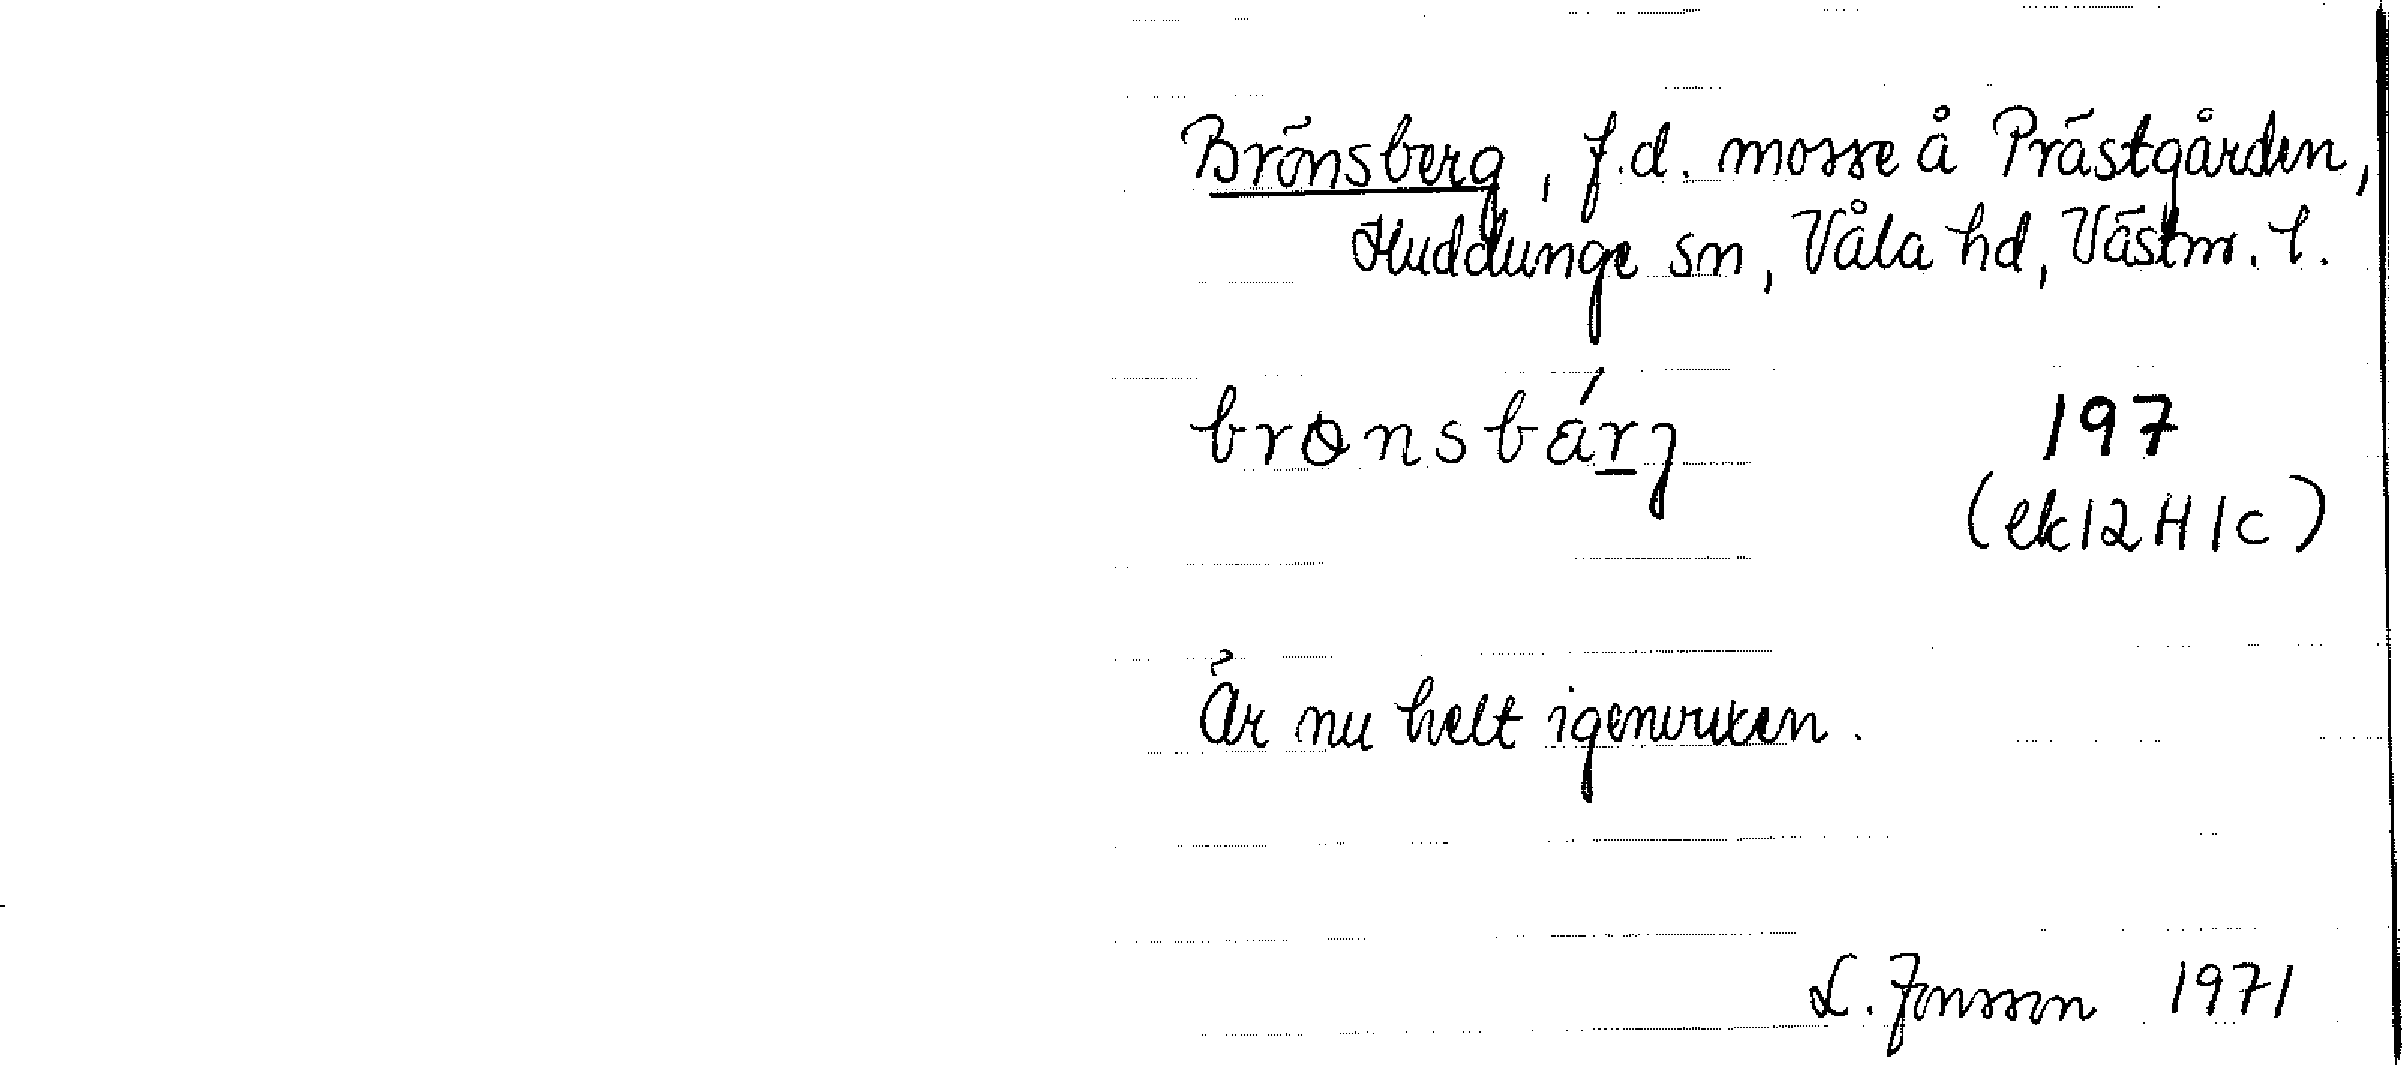 Brönsberg, f.d. mosse å Prästgården,
Huddunge sn, Våla hd, Västm. l.
197
(ek 12 H 1c)
Är nu helt igenvuxen.
L. Jonsson 1971